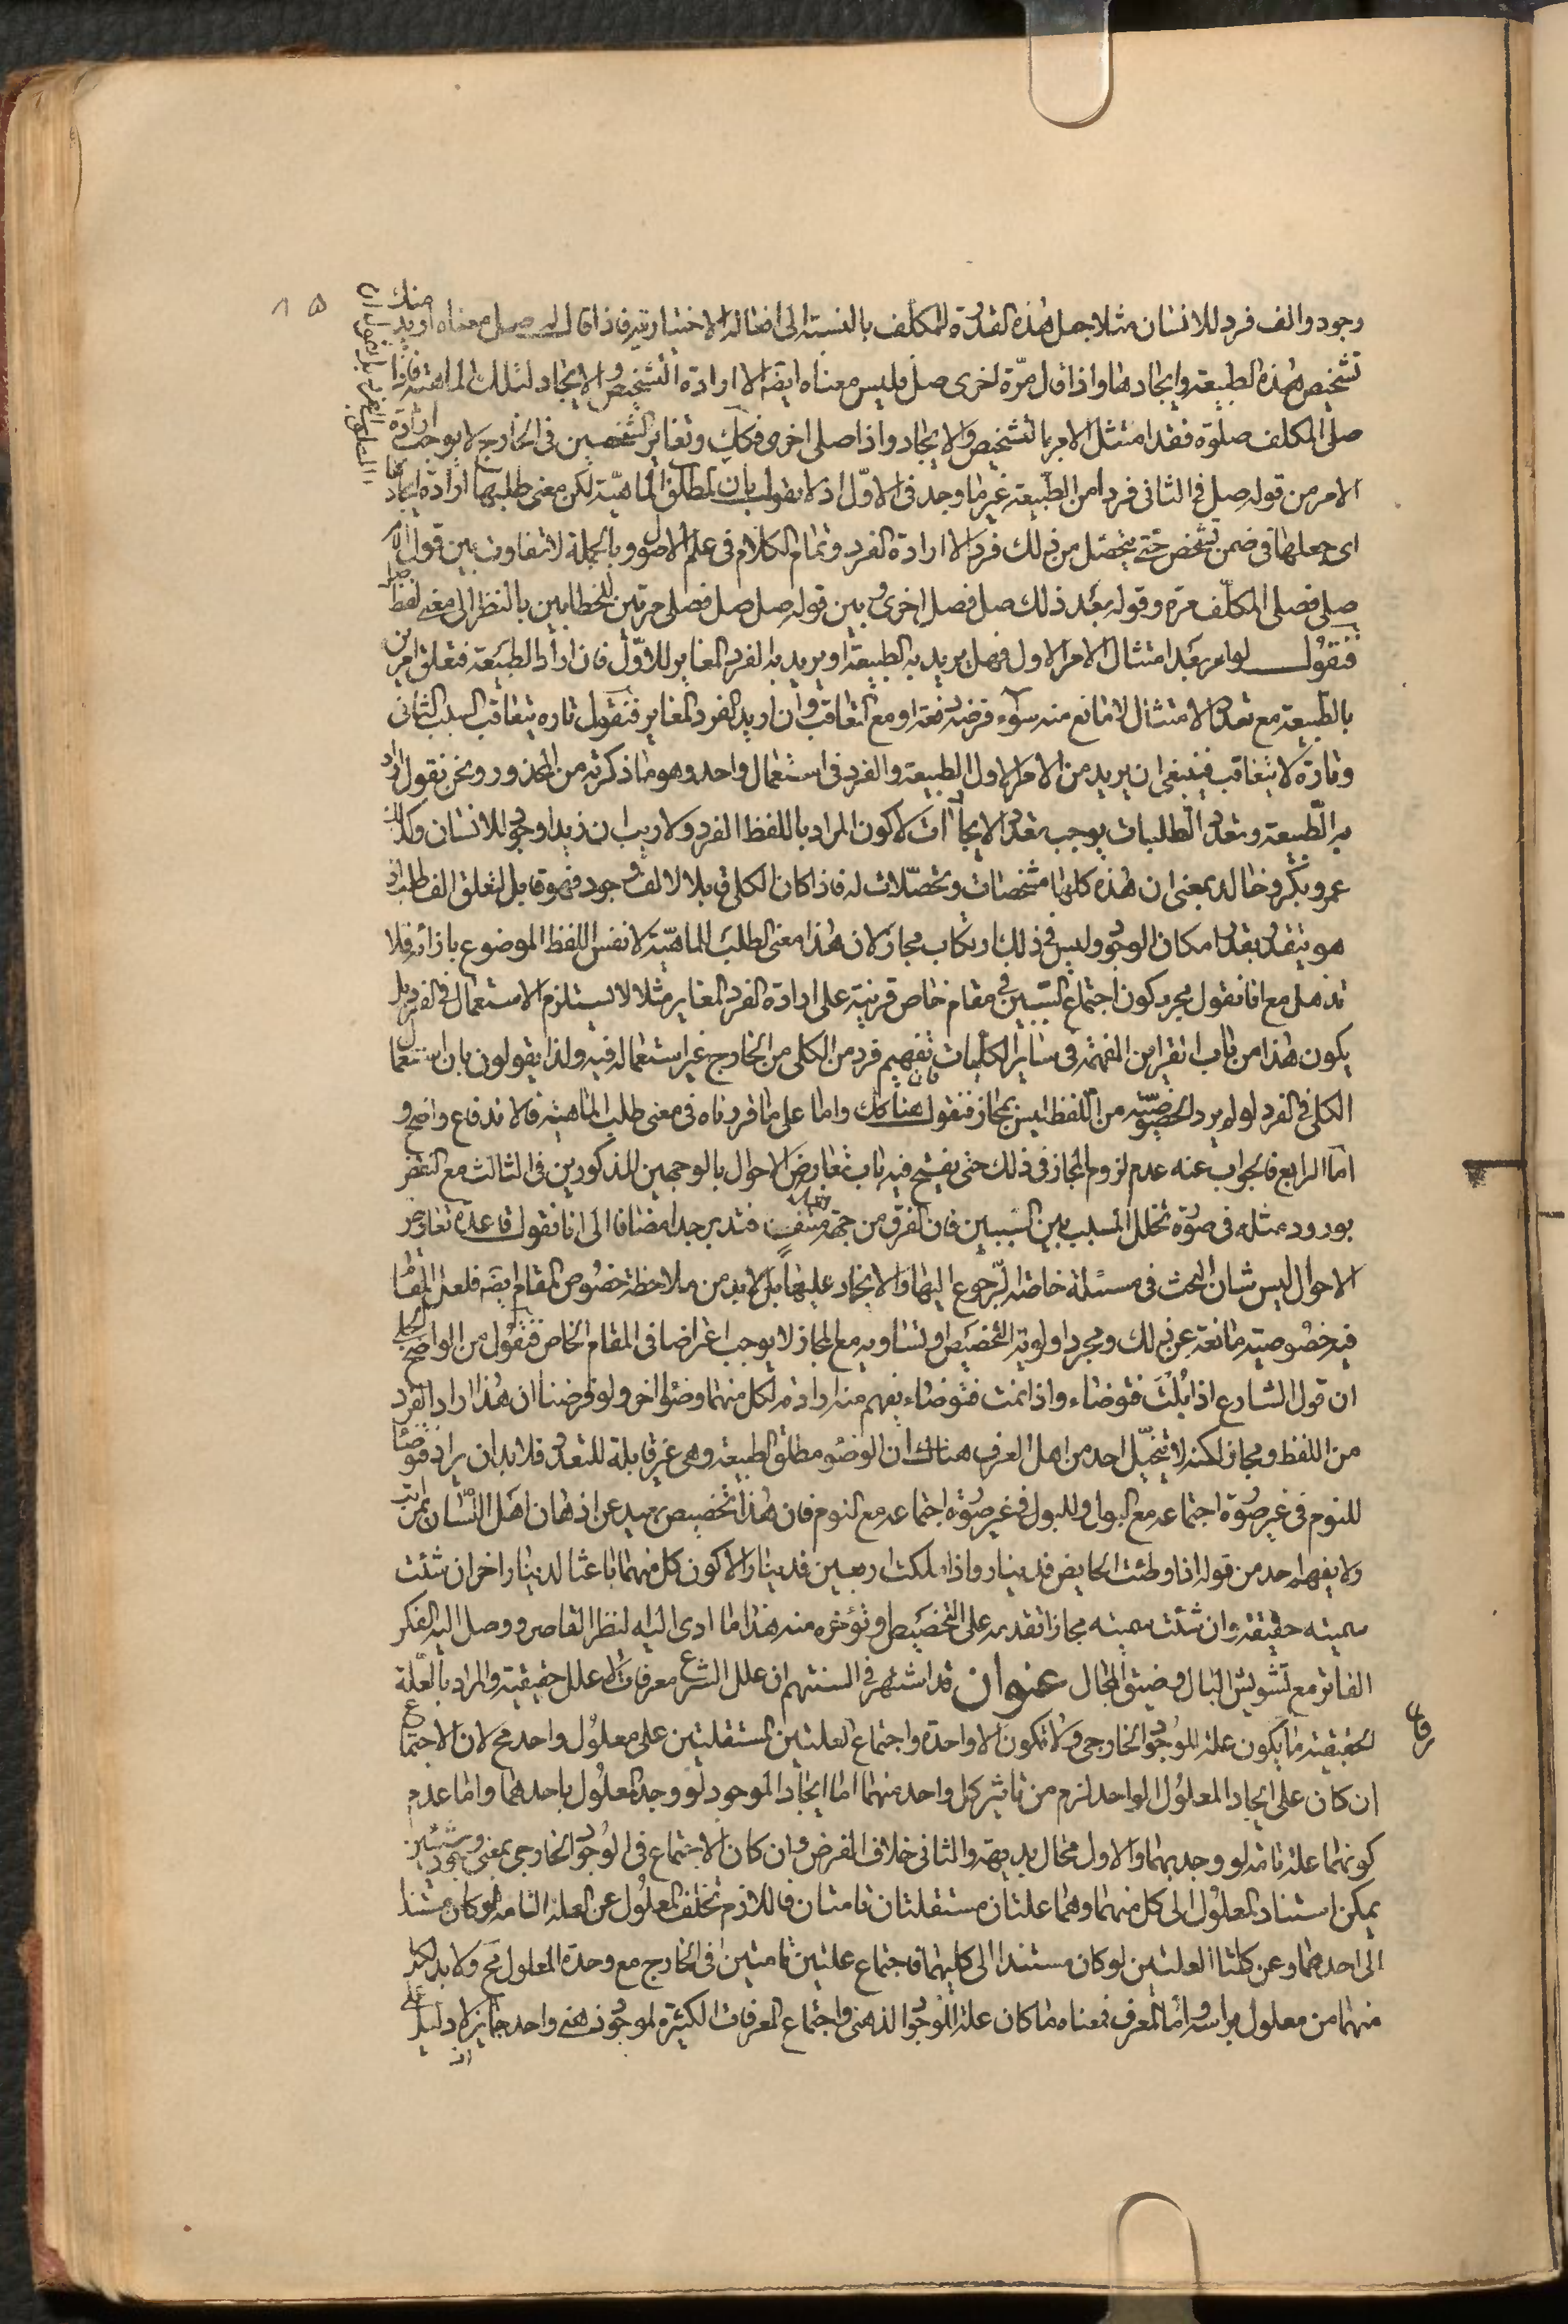 وجود والف فرد للانسان مثلا جعل هذه القدرة للمكلف بالنسبة الى افعاله الاختيارية فاذا قال له صل معناه اريد منك
تشخيص هذه الطبيعة وايجادها واذا قال مرّة اخرى صل فليس معناه ايضا الا ارادة التشخيص والايجاد لتلك الماهية فاذا
صلى المكلف صلوة فقد امتثل الامر بالتشخيص والايجاد واذا صلى اخرى فكك وتغاير الشخصين فى الخارج لا يوجب ارادة
الامر من قوله صل فى الثانى فردا من الطبيعة غير ما وجد فى الاوّل اذ لا نقول بان المطلوب الماهيّة لكن معنى طلبها ارادة ايجادها
اى جعلها فى ضمن تشخص حتى يتحصّل من ذلك فرد لا ارادة الفرد وتمام الكلام فى علم الاصول وبالجملة لا تفاوت بين قول الامر
صلى فصلى المكلّف مرة وقوله بعد ذلك صل فصل اخرى وبين قوله صل صل فصلى مرتين للخطابين بالنظر الى معنى لفظ صل
فنقول لو امر بعد امتثال الامر الاول فهل يريد به الطبيعة او يريد به الفرد المغاير للاوّل فان اراد الطبيعة فتعلق امرين
بالطبيعة مع تعدد الامتثال لا مانع منه سواء فرض دفعة او مع التعاقب وان اريد الفرد المغاير فنقول تاره يتعاقب السبب الثانى
وتارة لا يتعاقب فينبغى ان يريد من الامر الاول الطبيعة والفرد فى استعمال واحد وهو ما ذكرته من المحذور ونحن نقول اراد
به الطّبيعة وتعدد الطلبات يوجب تعدد الايجادات لا كون المراد باللفظ الفرد ولا ريب ان زيدا وجود للانسان وكذلك
عمرو وبكر وخالد بمعنى ان هذه كلها مشخصات ومحصّلات له فاذا كان الكلى قابلا لالف وجود فهو قابل لتعلق الف طلب اذ
هو يتعدد بعدد امكان الوجود وليس فى ذلك ارتكاب مجاز لان هذا معنى الطلب للماهيّة لا نفس اللفظ الموضوع بازائه فلا
تذهل مع انا نقول مجرد كون اجتماع السّببين فى مقام خاص قرينة على ارادة الفرد المغاير مثلا لا يستلزم الاستعمال فى الفرد بل
يكون هذا من باب القراين المفهمة فى ساير الكليات تفهيم فرد من الكلى من الخارج غير استعماله فيه ولذا يقولون بان استعمال
الكلى فى الفرد لو لم يرد الخصوصيّة من اللفظ ليس بمجاز فنقول هنا كك واما على ما قررناه فى معنى طلب الماهية فالاندفاع واضح و
امّا الرابع فالجواب عنه عدم لزوم المجاز فى ذلك حتى يفتح فيه باب تعارض الاحوال بالوجهين المذكورين فى الثالث مع النقض
بورود مثله فى صورة تخلل المسبب بين السببين فان الفرق من جهة منتف فتدبر جدا مضافا الى انا نقول قاعدة تعارض
الاحوال ليس شان البحث فى مسئلة خاصة الرّجوع اليها والايجاد عليها بل لا بد من ملاحظة خصوص المقام ايضا فلعل المقام
فيه خصوصية مانعة عن ذلك ومجرد اولوية التخصيص او تساويه مع المجاز لا يوجب اغراضا فى المقام الخاص فنقول من الواضح الجلى
ان قول الشارع اذا بُلْتَ فتوضاء واذا نمت فتوضاء يفهم منه ارادة لكل منهما وضوء اخر ولو فرضنا ان هذا اراد الفرد
من اللفظ ومجاز لكنه لا يتخيّل احد من اهل العرف هناك ان الوضوء مطلق الطبيعة وهى غير قابلة للتعدد فلا بد ان يراد فتوضاء
للنوم فى غير صورة اجتماعه مع البول وللبول فى غير صورة اجتماعه مع النوم فان هذا تخصيص بعيد عن اذهان اهل اللّسان بمراتب
ولا يفهم احد من قوله اذا وطئت الحايض فدينار واذا ملكت اربعين فدينار الا كون كل منهما باعثا لدينار اخر ان شئت
سميته حقيقة وان شئت سميته مجازا تقدمه على التخصيص او تؤخره منه هذا ما ادى اليه النظر القاصر ووصل اليه الفكر
الفاتر مع تشويش البال وضيق المجال عنوان قد اشتهر فى السنتهم ان علل الشرع معرفات لا علل حقيقية والمراد بالعلّة
الحقيقية ما يكون علة للوجود الخارجى ولا تكون الا واحدة واجتماع العلتين المستقلتين على معلول واحد مح لان الاجتماع
ان كان على ايجاد المعلول الواحد لزم من تاثير كل واحد منهما اما ايجاد الموجود لو وجد المعلول باحدهما واما عدم
كونهما علة تامة لو وجد بهما والاول محال بديهة والثانى خلاف الفرض وان كان الاجتماع فى الوجود الخارجى بمعنى وجود شيئين
يمكن استناد المعلول الى كل منهما وهما علتان مستقلتان تامتان فاللازم تخلف المعلول عن العلة التامة لو كان مستندا
الى احدهما وعن كلتا العلتين لو كان مستندا الى كليهما فاجتماع علتين تامتين فى الخارج مع وحدة المعلول مح ولا بد لكل
منهما من معلول براسه وامّا المعرف فمعناه ما كان علة للوجود الذهنى واجتماع المعرفات الكثيرة لموجود ذهنى واحد جايز لا دليل على